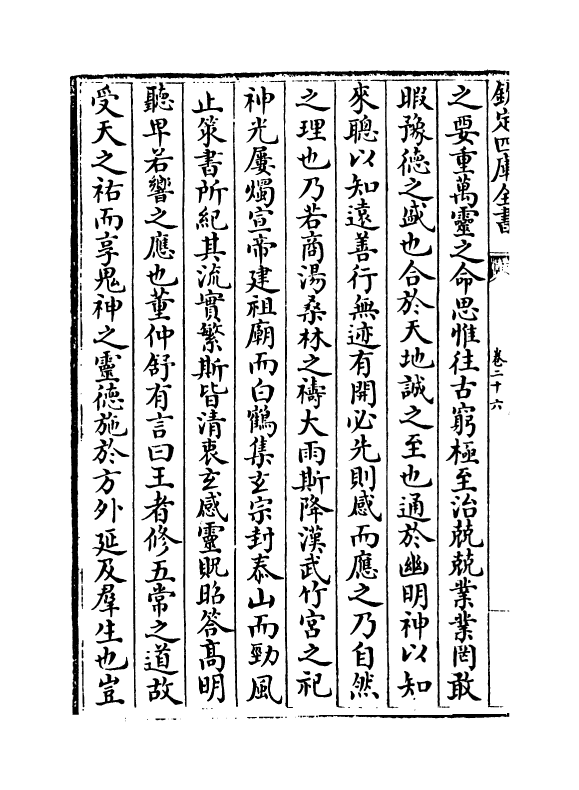 欽定四庫全書
卷二十六
之要重萬靈之命思惟往古窮極至治兢兢業業罔敢
暇豫德之盛也合於天地誠之至也通於幽明神以知
來聰以知遠善行無迹有開必先則感而應之乃自然
之理也乃若商湯桑林之禱大雨斯降漢武竹宮之祀
神光屢燭宣帝建祖廟而白鶴集玄宗封泰山而勁風
止策書所紀其流實繁斯皆清衷玄感靈貺昭答高明
聽卑若響之應也董仲舒有言曰王者修五常之道故
受天之祐而享鬼神之靈德施於方外延及羣生也豈